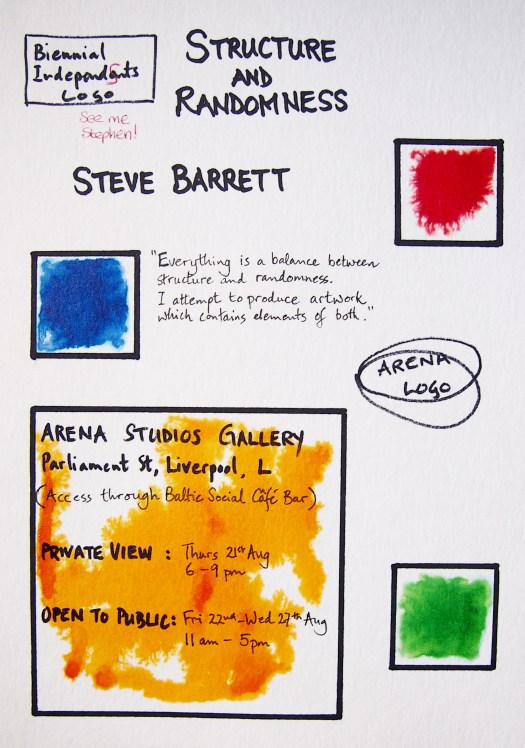 Biennial
Independents
LOGO
See me
Stephen!
STRUCTURE
AND
RANDOMNESS
STEVE BARRETT
"Everything is a balance between
structure and randomness.
I attempt to produce artwork
which contains elements of both."
ARENA
LOGO
ARENA STUDIOS GALLERY
Parliament St, Liverpool, L
(Access through Baltic Social Câfé Bar)
PRIVATE VIEW : Thurs 21st Aug
6 - 9 pm
OPEN TO PUBLIC: Fri 22nd - Wed 27th Aug
11 am - 5pm